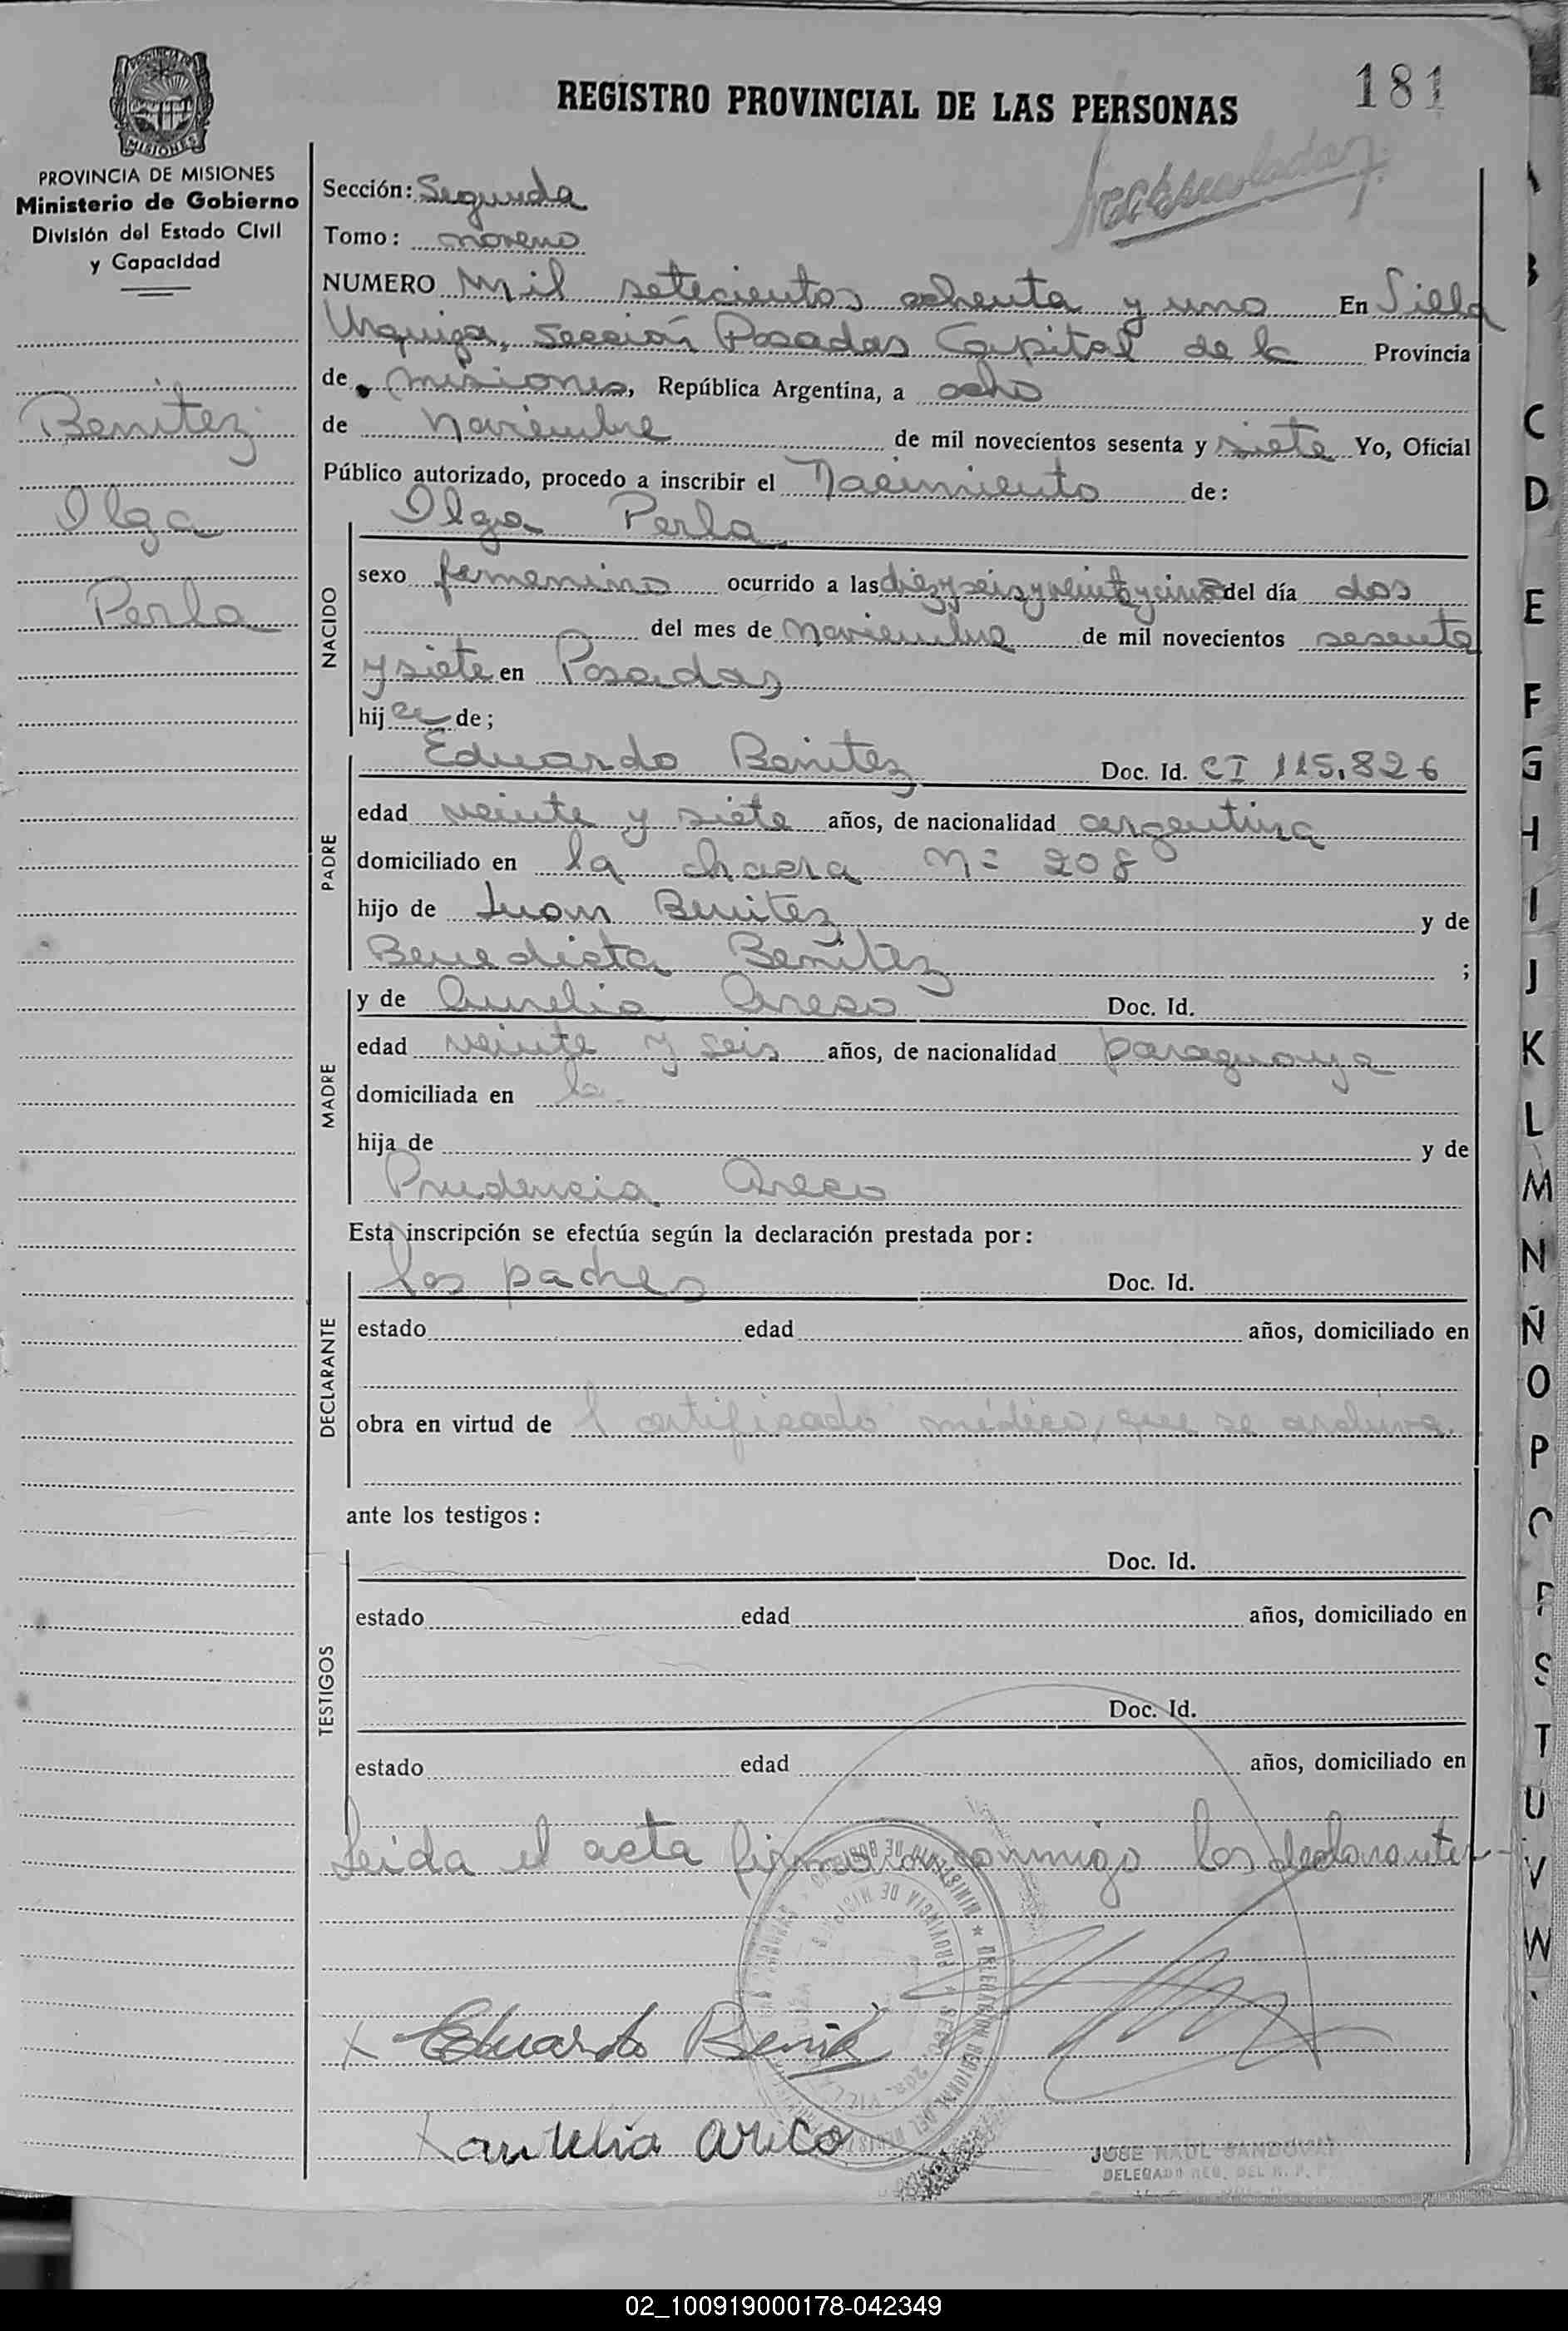 181
REGISTRO PROVINCIAL DE LAS PERSONAS
MISIONES
PROVINCIA DE MISIONES
Ministerio de Gobierno
División del Estado Civil
y Capacidad
Benitez
Olga
Perla
Sección: Segunda
Tomo: noveno
NUMERO mil setecientos ochenta y uno En Villa
Urquiza, Sección Posadas Capital de la Provincia
de misiones, República Argentina, a ocho
de noviembre de mil novecientos sesenta y siete Yo, Oficial
Público autorizado, procedo a inscribir el Nacimiento de:
NACIDO
Olga Perla
sexo femenino ocurrido a las diez y seis y veinte y cinco del día dos
del mes de noviembre de mil novecientos sesenta
y siete en Posadas
hija de;
PADRE
Eduardo Benitez Doc. Id. CI 115.826
edad veinte y siete años, de nacionalidad argentina
domiciliado en la chacra Nº 208
hijo de Juan Benitez y de
Benedicta Benitez ;
MADRE
y de Aurelia Areco Doc. Id.
edad veinte y seis años, de nacionalidad paraguaya
domiciliada en la
hija de y de
Prudencia Areco
Esta inscripción se efectúa según la declaración prestada por:
DECLARANTE
los padres Doc. Id.
estado edad años, domiciliado en
obra en virtud de l certificado médico, que se archiva.
ante los testigos:
TESTIGOS
Doc. Id.
estado edad años, domiciliado en
Doc. Id.
estado edad años, domiciliado en
Leida el acta firman conmigo los declarantes
x Eduardo Benitez
x aurelia areco
JOSE RAUL SANDOVAL
DELEGADO REG. DEL R. P. P.
B
C
D
E
F
G
H
I
J
K
L
M
N
Ñ
O
P
S
T
U
V
W
02_100919000178-042349